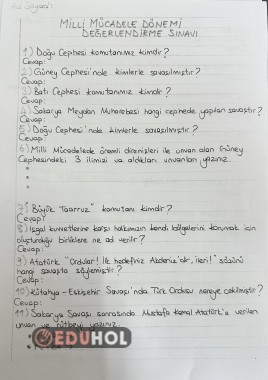 Ad Soyad:
MİLLİ MÜCADELE DÖNEMİ
DEĞERLENDİRME SINAVI
1) Doğu Cephesi komutanımız kimdir?
Cevap:
2) Güney Cephesi'nde kimlerle savaşılmıştır?
Cevap:
3) Batı Cephesi komutanımız kimdir?
Cevap:
4) Sakarya Meydan Muharebesi hangi cephede yapılan savaştır?
Cevap:
5) Doğu Cephesi'nde kimlerle savaşılmıştır?
Cevap:
6) Milli Mücadelede önemli direnişleri ile unvan alan Güney
Cephesindeki 3 ilimizi ve aldıkları unvanları yazınız.
•
•
•
7) "Büyük Taarruz" komutanı kimdir?
Cevap:
8) İşgal kuvvetlerine karşı halkımızın kendi bölgelerini korumak için
oluşturduğu birliklere ne ad verilir?
Cevap:
9) Atatürk "Ordular! İlk hedefiniz Akdeniz'dir, ileri!" sözünü
hangi savaşta söylemiştir?
Cevap:
10) Kütahya - Eskişehir Savaşı'nda Türk Ordusu nereye çekilmiştir?
Cevap:
11) Sakarya Savaşı sonrasında Mustafa Kemal Atatürk'e verilen
unvan ve rütbeyi yazınız.
EDUHOL